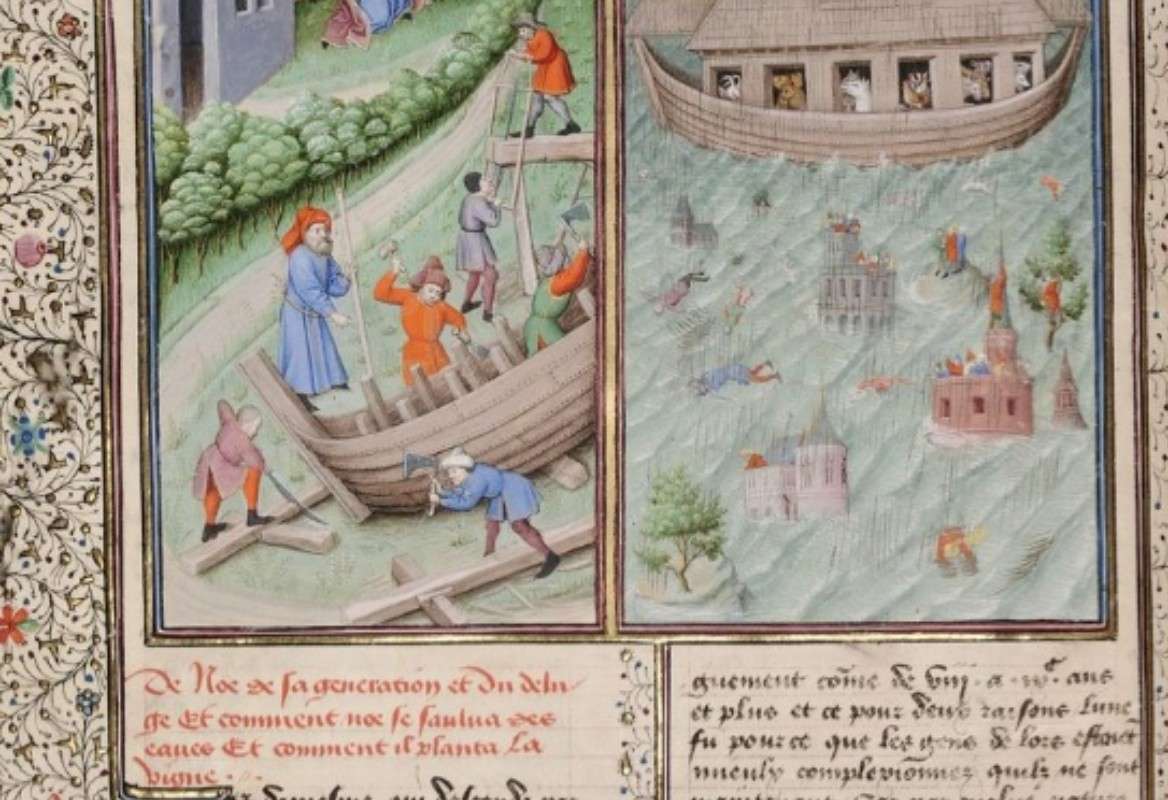 De Noe de sa generation et du delu
ge Et comment noe se saulua des
eaues Et comment il planta la
vigne
guement cõme de viij. a ixc ans
et plus et ce pour deux raisons lune
fu pour ce que les gens de lors estoiēt
mieulx complexionnez quilz ne sont